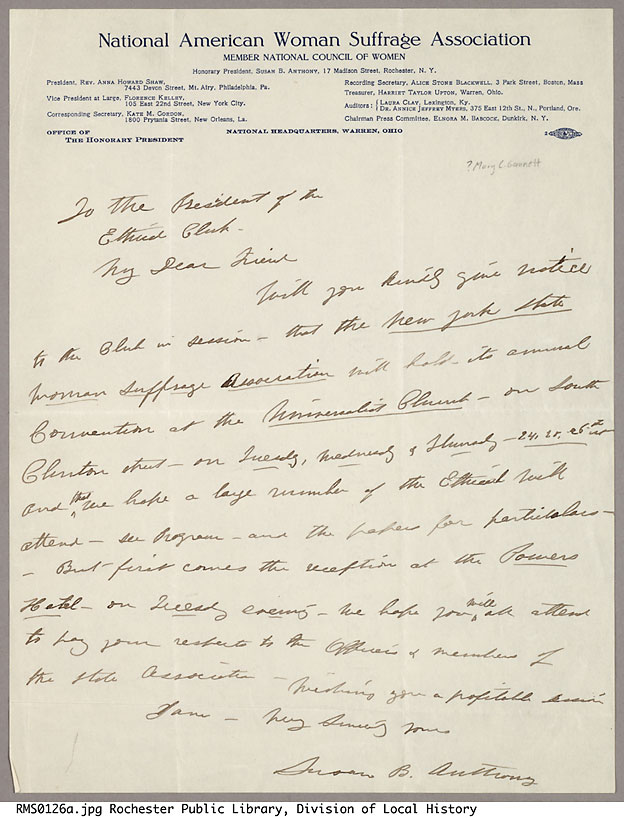 National American Woman Suffrage Association
MEMBER NATIONAL COUNCIL OF WOMEN
Honorary President, SUSAN B. ANTHONY, 17 Madison Street, Rochester, N. Y.
President, REV. ANNA HOWARD SHAW,
7443 Devon Street, Mt. Airy, Philadelphia, Pa.
Vice President at Large, FLORENCE KELLEY,
105 East 22nd Street, New York City.
Corresponding Secretary, KATE M. GORDON,
1800 Prytania Street, New Orleans, La.
Recording Secretary, ALICE STONE BLACKWELL, 3 Park Street, Boston, Mass
Treasurer, HARRIET TAYLOR UPTON, Warren, Ohio.
Auditors: { LAURA CLAY, Lexington, Ky.
DR. ANNICE JEFFREY MYERS, 375 East 12th St., N., Portland, Ore.
Chairman Press Committee, ELNORA M. BABCOCK, Dunkirk, N. Y.
OFFICE OF
THE HONORARY PRESIDENT
NATIONAL HEADQUARTERS, WARREN, OHIO
? Mary C. Gannett
To the President of the
Ethical Club -
My Dear Friend
Will you kindly give notice
to the Club in session - that the New York State
Woman Suffrage Association will hold its annual
Convention at the Universalist Church - on South
Clinton street - on Tuesday, Wednesday & Thursday - 24. 25. 26th
and that we hope a large number of the Ethical will
attend - see Program - and the papers for particulars -
- But first comes the reception at the Powers
Hotel - on Tuesday evening - we hope you will all attend
to pay your respects to the Officers & members of
the State Association - Wishing you a profitable session
I am - Very Sincerely yours
Susan B. Anthony
RMS0126a.jpg Rochester Public Library, Division of Local History